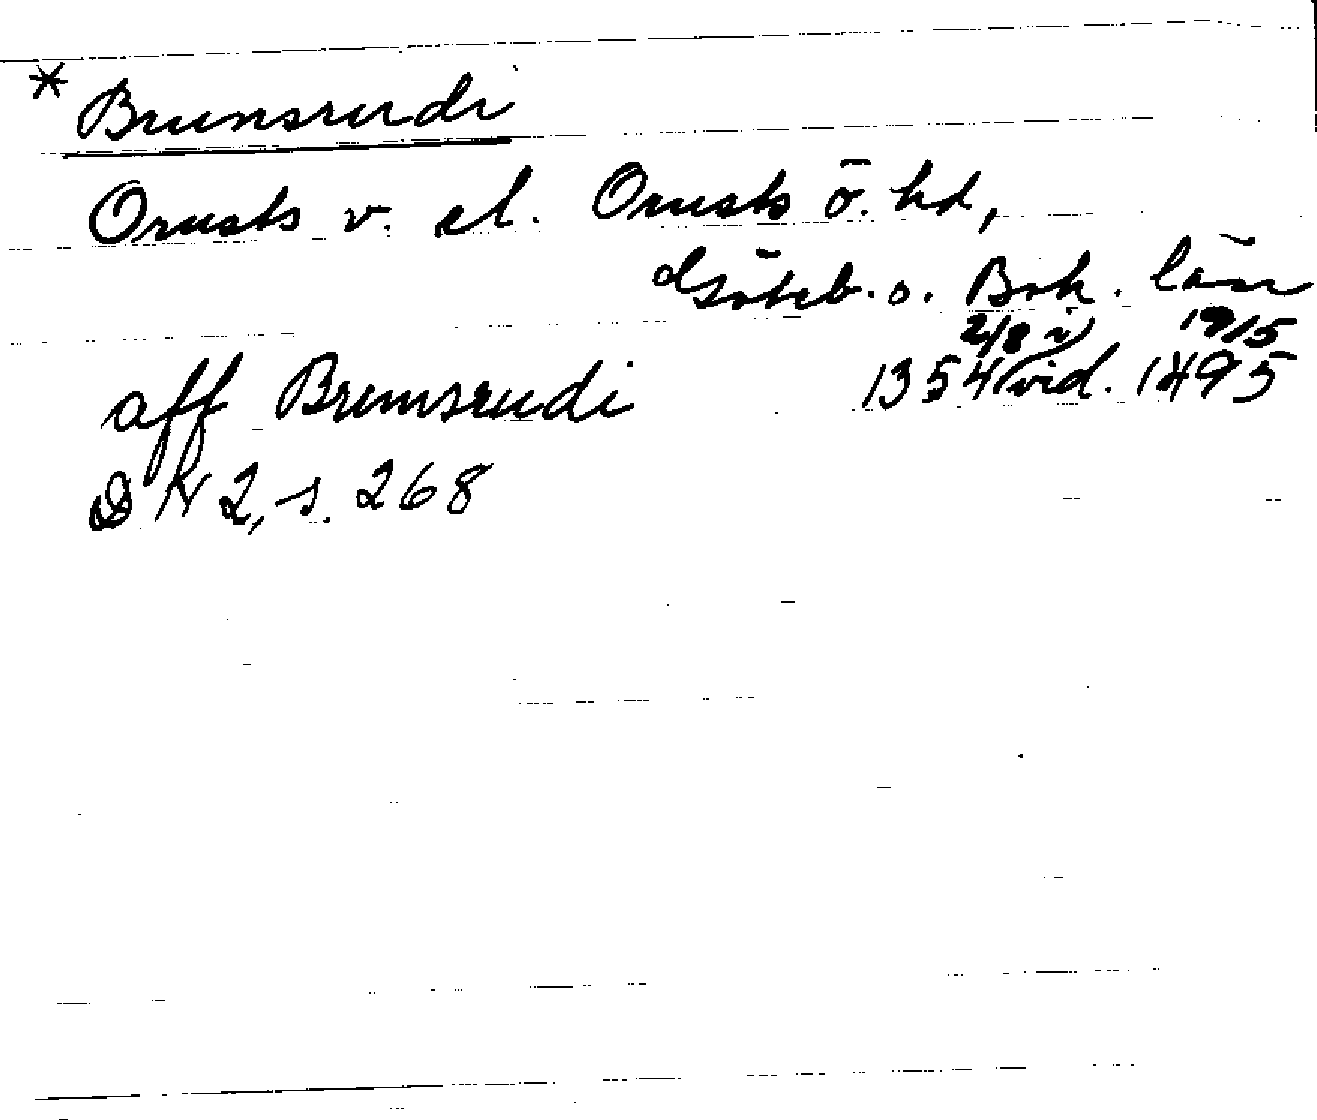 * Brunsrudi
Orusts v. el. Orusts ö. hd,
Göteb. o. Boh. län
2/8 i 19/5
aff Brunsrudi 1354 vid. 1495
DN 2, s. 268